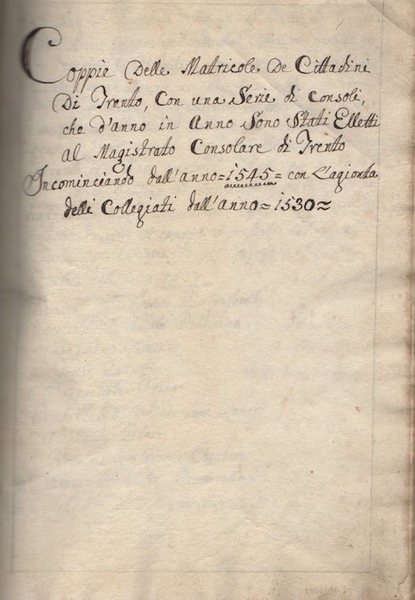 Coppie Delle Matricole De Cittadini
Di Trento, Con una Serie di Consoli,
che d'anno in Anno Sono Stati Elletti
al Magistrato Consolare di Trento
Incominciando dall'anno=1545=con L'agionta
delli Collegiati dall'Anno=1530=